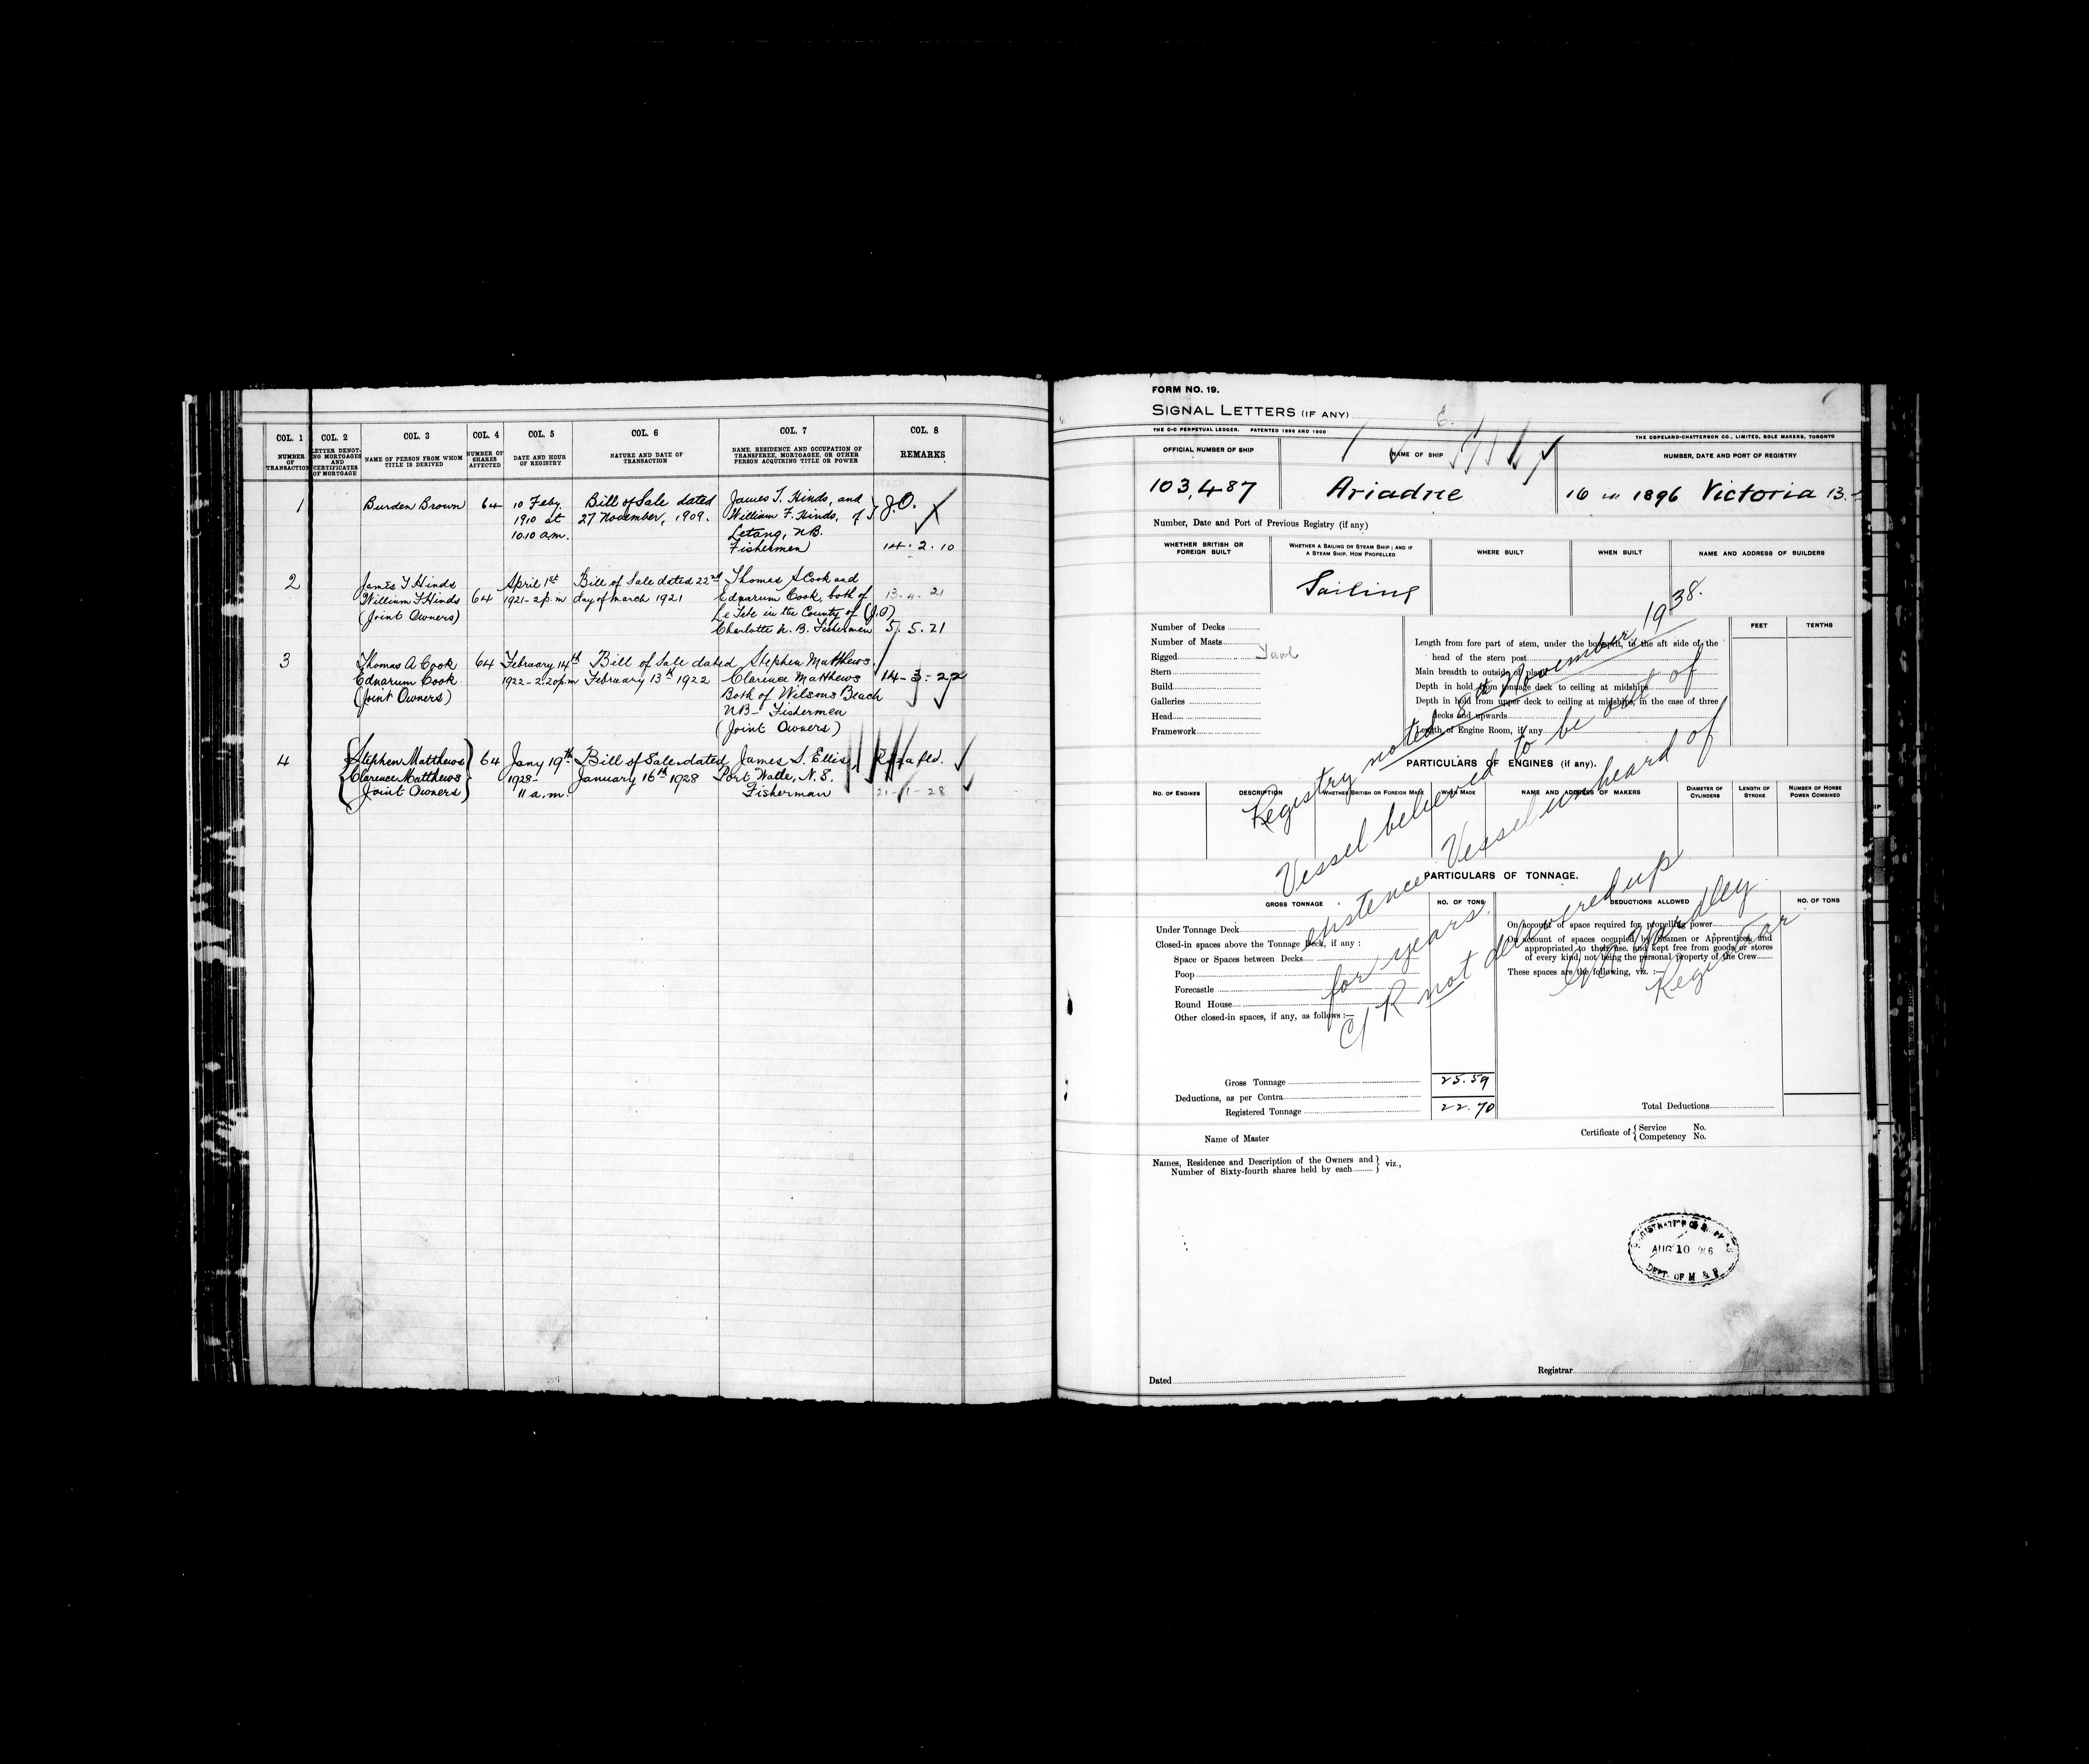 COL. 1
COL. 2
COL. 3
COL. 4
COL. 5
COL. 6
COL. 7
COL. 8
NUMBER
OF
TRANSACTION
LETTER DENOT-
ING MORTGAGES
AND
CERTIFICATES
OF MORTGAGE
NAME OF PERSON FROM WHOM
TITLE IS DERIVED
NUMBER OF
SHARES
AFFECTED
DATE AND HOUR
OF REGISTRY
NATURE AND DATE OF
TRANSACTION
NAME, RESIDENCE AND OCCUPATION OF
TRANSFEREE, MORTGAGEE, OR OTHER
PERSON ACQUIRING TITLE OR POWER
REMARKS
1
Burden Brown
64
10 Feby.
1910 at
10.10 a.m.
Bill of Sale dated
27 November, 1909.
James T. Hinds, and
William F. Hinds, of
Letang, N.B.
Fishermen
J.O.
14.2.10
2
James T Hinds
William F Hinds
(Joint Owners)
64
April 1st
1921 - 2 p.m
Bill of Sale dated 22nd
day of March 1921
Thomas A Cook and
Ednarum Cook, both of
Le Tete in the County of
Charlotte N. B. Fishermen
13-4-21
(J.O)
5.5.21
3
Thomas A Cook
Ednarum Cook
(Joint Owners)
64
February 14th
1922 - 2.20 p.m
Bill of Sale dated
February 13th 1922
Stephen Matthews.
Clarince Matthews
Both of Wilsons Beach
NB - Fishermen
(Joint Owners)
14-3-22
4
Stephen Matthews
Clarence Matthews
Joint Owners
64
Jany 19th
1928 -
11 a.m.
Bill of Sale dated
January 16th 1928
James S. Ellis,
Port Wade, N.S.
Fisherman
21-1-28
FORM NO. 19.
SIGNAL LETTERS (IF ANY)
THE C-C PERPETUAL LEDGER. PATENTED 1896 AND 1900
THE COPELAND-CHATTERSON CO., LIMITED, SOLE MAKERS, TORONTO
OFFICIAL NUMBER OF SHIP
NAME OF SHIP
NUMBER, DATE AND PORT OF REGISTRY
103,487
Ariadne
16 in 1896 Victoria B.
Number, Date and Port of Previous Registry (if any)
WHETHER BRITISH OR
FOREIGN BUILT
WHETHER A SAILING OR STEAM SHIP; AND IF
A STEAM SHIP, HOW PROPELLED
WHERE BUILT
WHEN BUILT
NAME AND ADDRESS OF BUILDERS
Sailing
Number of Decks
Number of Masts
Rigged
Yawl
Stern
Build
Galleries
Head
Framework
FEET
TENTHS
Length from fore part of stem, under the bowsprit, to the aft side of the
head of the stern post
Main breadth to outside of plank
Depth in hold from tonnage deck to ceiling at midships
Depth in hold from upper deck to ceiling at midships, in the case of three
decks and upwards
Length of Engine Room, if any
Registry noted 8th November 1938.
Vessel believed to be out of
existence. Vessel unheard of
for years.
C/R not delivered up
Registrar
PARTICULARS OF ENGINES (if any).
NO. OF ENGINES
DESCRIPTION
WHETHER BRITISH OR FOREIGN MADE
WHEN MADE
NAME AND ADDRESS OF MAKERS
DIAMETER OF
CYLINDERS
LENGTH OF
STROKE
NUMBER OF HORSE
POWER COMBINED
PARTICULARS OF TONNAGE.
GROSS TONNAGE
NO. OF TONS
DEDUCTIONS ALLOWED
NO. OF TONS
Under Tonnage Deck
Closed-in spaces above the Tonnage Deck, if any :
Space or Spaces between Decks
Poop
Forecastle
Round House
Other closed-in spaces, if any, as follows :—
On account of space required for propelling power
On account of spaces occupied by Seamen or Apprentices, and
appropriated to their use, and kept free from goods or stores
of every kind, not being the personal property of the Crew
These spaces are the following, viz. :—
Gross Tonnage
25.59
Deductions, as per Contra
Registered Tonnage
22.70
Total Deductions
Name of Master
Certificate of { Service No.
Competency No.
Names, Residence and Description of the Owners and
Number of Sixty-fourth shares held by each
viz.,
AUG 10
DEPT. OF M & F
Dated
Registrar